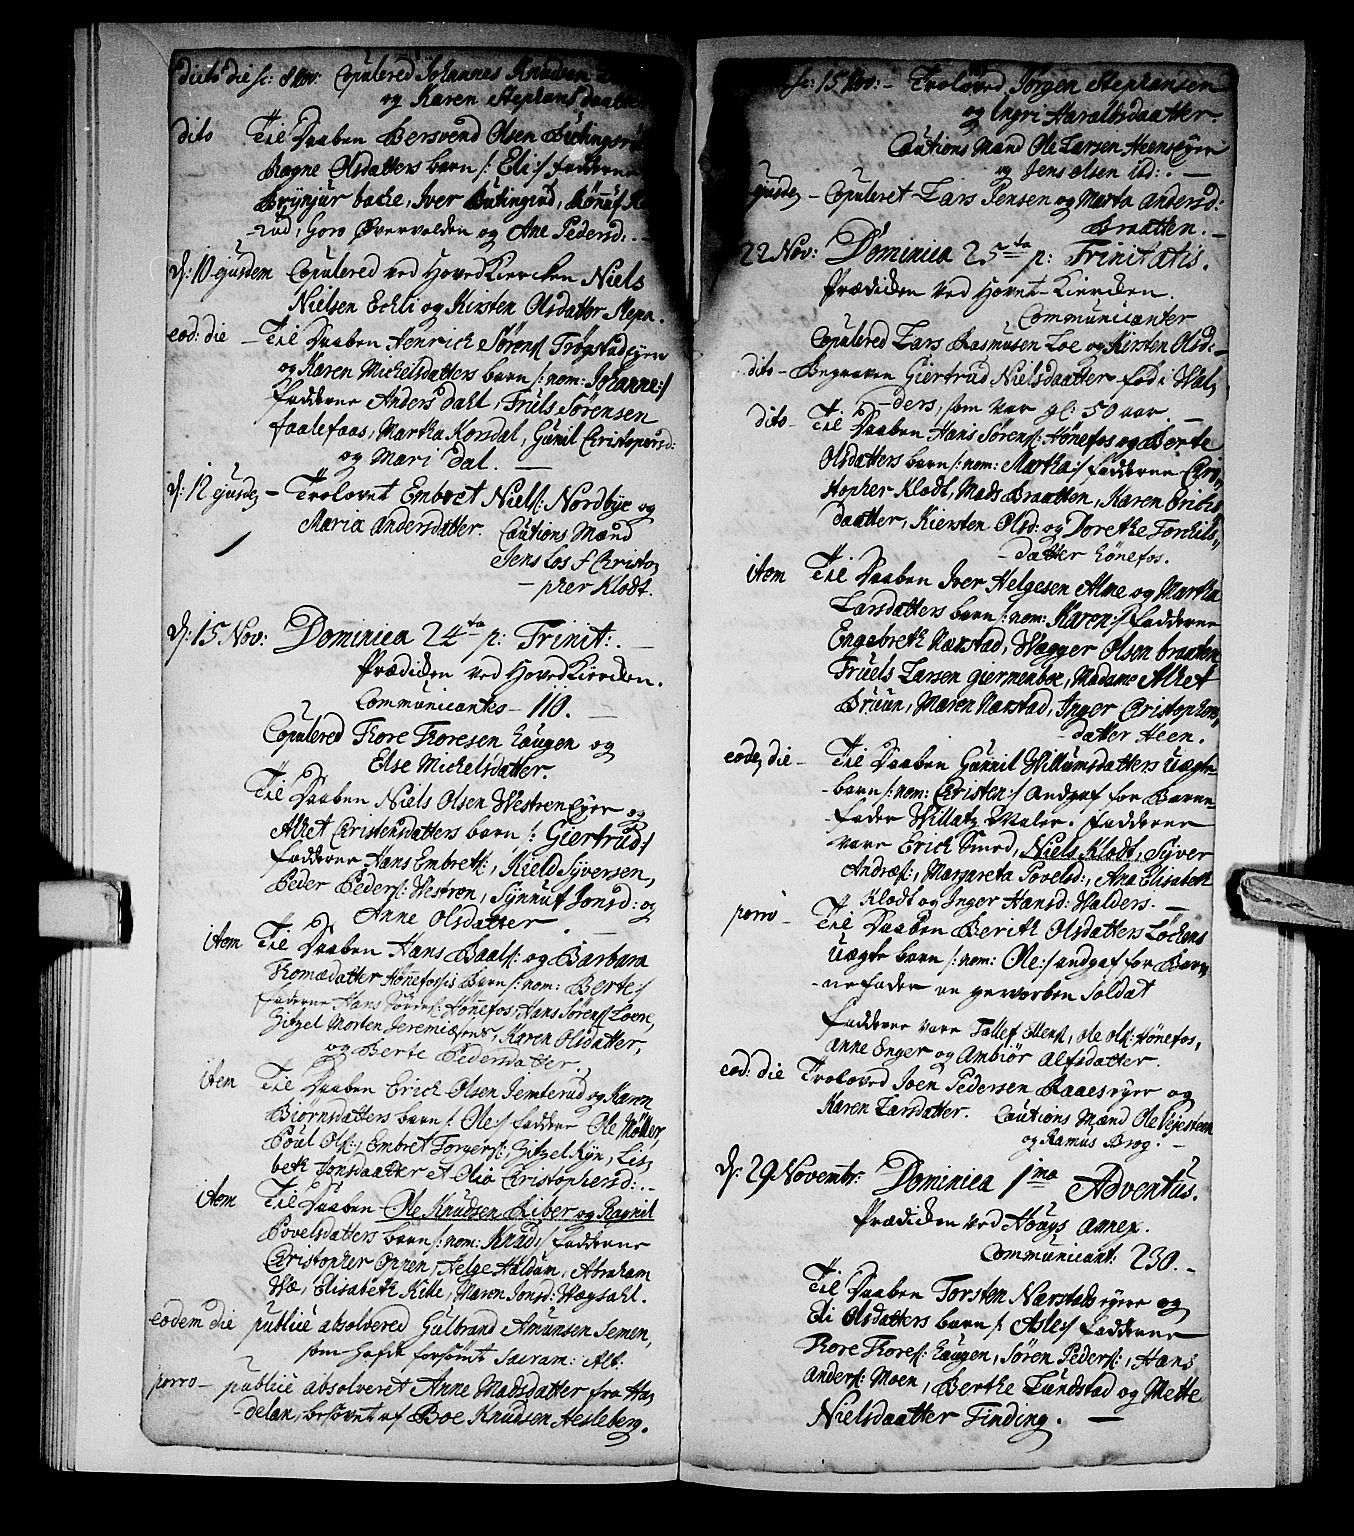 dito die sc: 8 Nov: Copulered Johannes Knudsen
og Karen Stephansdaatter
dito Til Daaben Bersvend Olsen
Ragne Olsdatters barn /: Eli :/ Fadderne
Brynjur backe, Iver Butingrud, Rönnef
-rud, Goro Øvervolden og Ane Pedersd: . -
d: 10 ejusdem Copulered ved HovedKierchen Niels
Nielsen Eckli og Kirsten Olsdatter Mepn. -
eod: die - Til Daaben Henrich Sörens: Trøgstadeyren
og Karen Michelsdatters barn /: nom: Johanne :/
Fadderne Anders dahl, Truls Sörensen
faalefaas, Martha Korsdal, Gunil Christophersd:
og Mari Dal. -
d: 12 ejusdem - Trolovet Embret Niels: Nordbye og
Maria Andersdatter. Cautions Mænd
Jens Los & Christo,
- pher Klodt.
d: 15 Nov: Dominica 24ta p: Trinit: . -
Prædiken ved HovedKierchen.
Communicantes - 110. -
Copulered Thore Thoresen Haugen og
Else Michelsdatter.
Til Daaben Niels Olsen Westren Eyer og
Alhet Christensdatters barn /: Giertrud :/
Fadderne Hans Embrets:, Kield Syversen,
Peder Peders: Westren, Synnuf Jonsd: og
Anne Olsdatter . -
item Til Daaben Hans Baals: og Barbara
Thomædatter Hönefossis Barn /: nom: Berte :/
Faderne Hans Sörens: Hönefos, Hans Sörens: Loere,
Gitzel Morten Jeremiæsens, Karen Olsdatter,
og Berte Pedersdatter.
item Til Daaben Erich Olsen Jemterud og Karen
Biornsdatters barn /: Ole :/ Faddere Ole Möller,
Poul Ols:, Embret Torgers:, Gitzel Kyn, Lis,
beth Jonsdaatter et Olia Christophersd: . -
item Til Daaben Ole Knudsen Liber og Ragnil
Povelsdatters barn /: nom: Knud :/ Fadderne
Christopher Oppen, Helge Haldum, Abraham
Hæ, Elisabeth Kille, Maren Jonsd: Hægdahl.
eodem die publice absolvered Gulbrand Amunsen Semen,
som hafde forsømt Sacram: Alt:
porro - publice absolveret Anne Madsdatter fra Ha,
- delan, besovet af Boe Knudsen Hesleberg.
sc: 15 Nov: - Troloved Jörgen Stephansen
og Ingri Haralsdaatter -
Cautions Mænd Ole Larsen Heenseyer
og Jens olsen ibd: . -
ejusdem - Copuleret Lars Jensen og Marta Andersd:
Braatten. -
22 Nov: Dominica 25ta p: Trinitatis.
Prædiken ved Hovet-Kierchen.
Communicanter
Copulered Lars Rasmusen Loe og Kirsten Olsd: -
dito - Begraven Giertrud Nielsdaatter fød i Val,
- ders, som var gl: 50 aar. -
dito - Til Daaben Hans Sörens: Hönefos og Berte
Olsdatters barn /: nom: Martha :/ Fadderne Chri,
stopher Klodt, Mads Braatten, Karen Erichs,
daatter, Kiersten Olsd: og Dorethe Torchils,,
- datter Hönefos.
item Til Daaben Iver Helgesen Alme og Martha
Larsdatters barn /: nom: Karen :/ Fadderne
Engebreth Næxstad, Wegger Olsen braaten
Truels Larsen giermenboe, Madame Alhet
Bruun, Maren Næxstad, Inger Cristophers,
datter Heen.
eodem die - Til Daaben Gunnil Willumsdatters Uægte
- barn /: nom: Christen :/ angaf for Barne
- fader Willatz Maler. Fadderne
vare Erich Smed, Niels Klodt, Syver
Andræs:, Margareta Povelsd:, Ana Elisabeth
Klodt og Inger Hansd: Walders. -
porro - Til Daaben Berith Olsdatters Löckens
Uægte barn /: nom: Ole :/ angaf for Bar,
- nefader en geworben Soldat
Fadderne vare Tollef Ellens:, Ole Ols: Hönefos,
Anne Enger og Ambiör Alfsdatter.
eod: die Troloved Joen Pedersen Raaeseyer og
Karen Larsdatter. Cautions Mænd Ole Vejesteen
og Ramus Brog. -
d: 29 Novembr: Dominica 1ma Adventus.
Prædiken ved Hougs annex.
Communicant: 230. -
Til Daaben Torsten Næxstadeyere og
Eli Olsdatters barn /: Asle :/ Fadderne
Thore Thores: Haugen, Sören Peders:, Hans
Anders: Moen, Berthe Lundstad og Mette
Nielsdaatter Finding. -